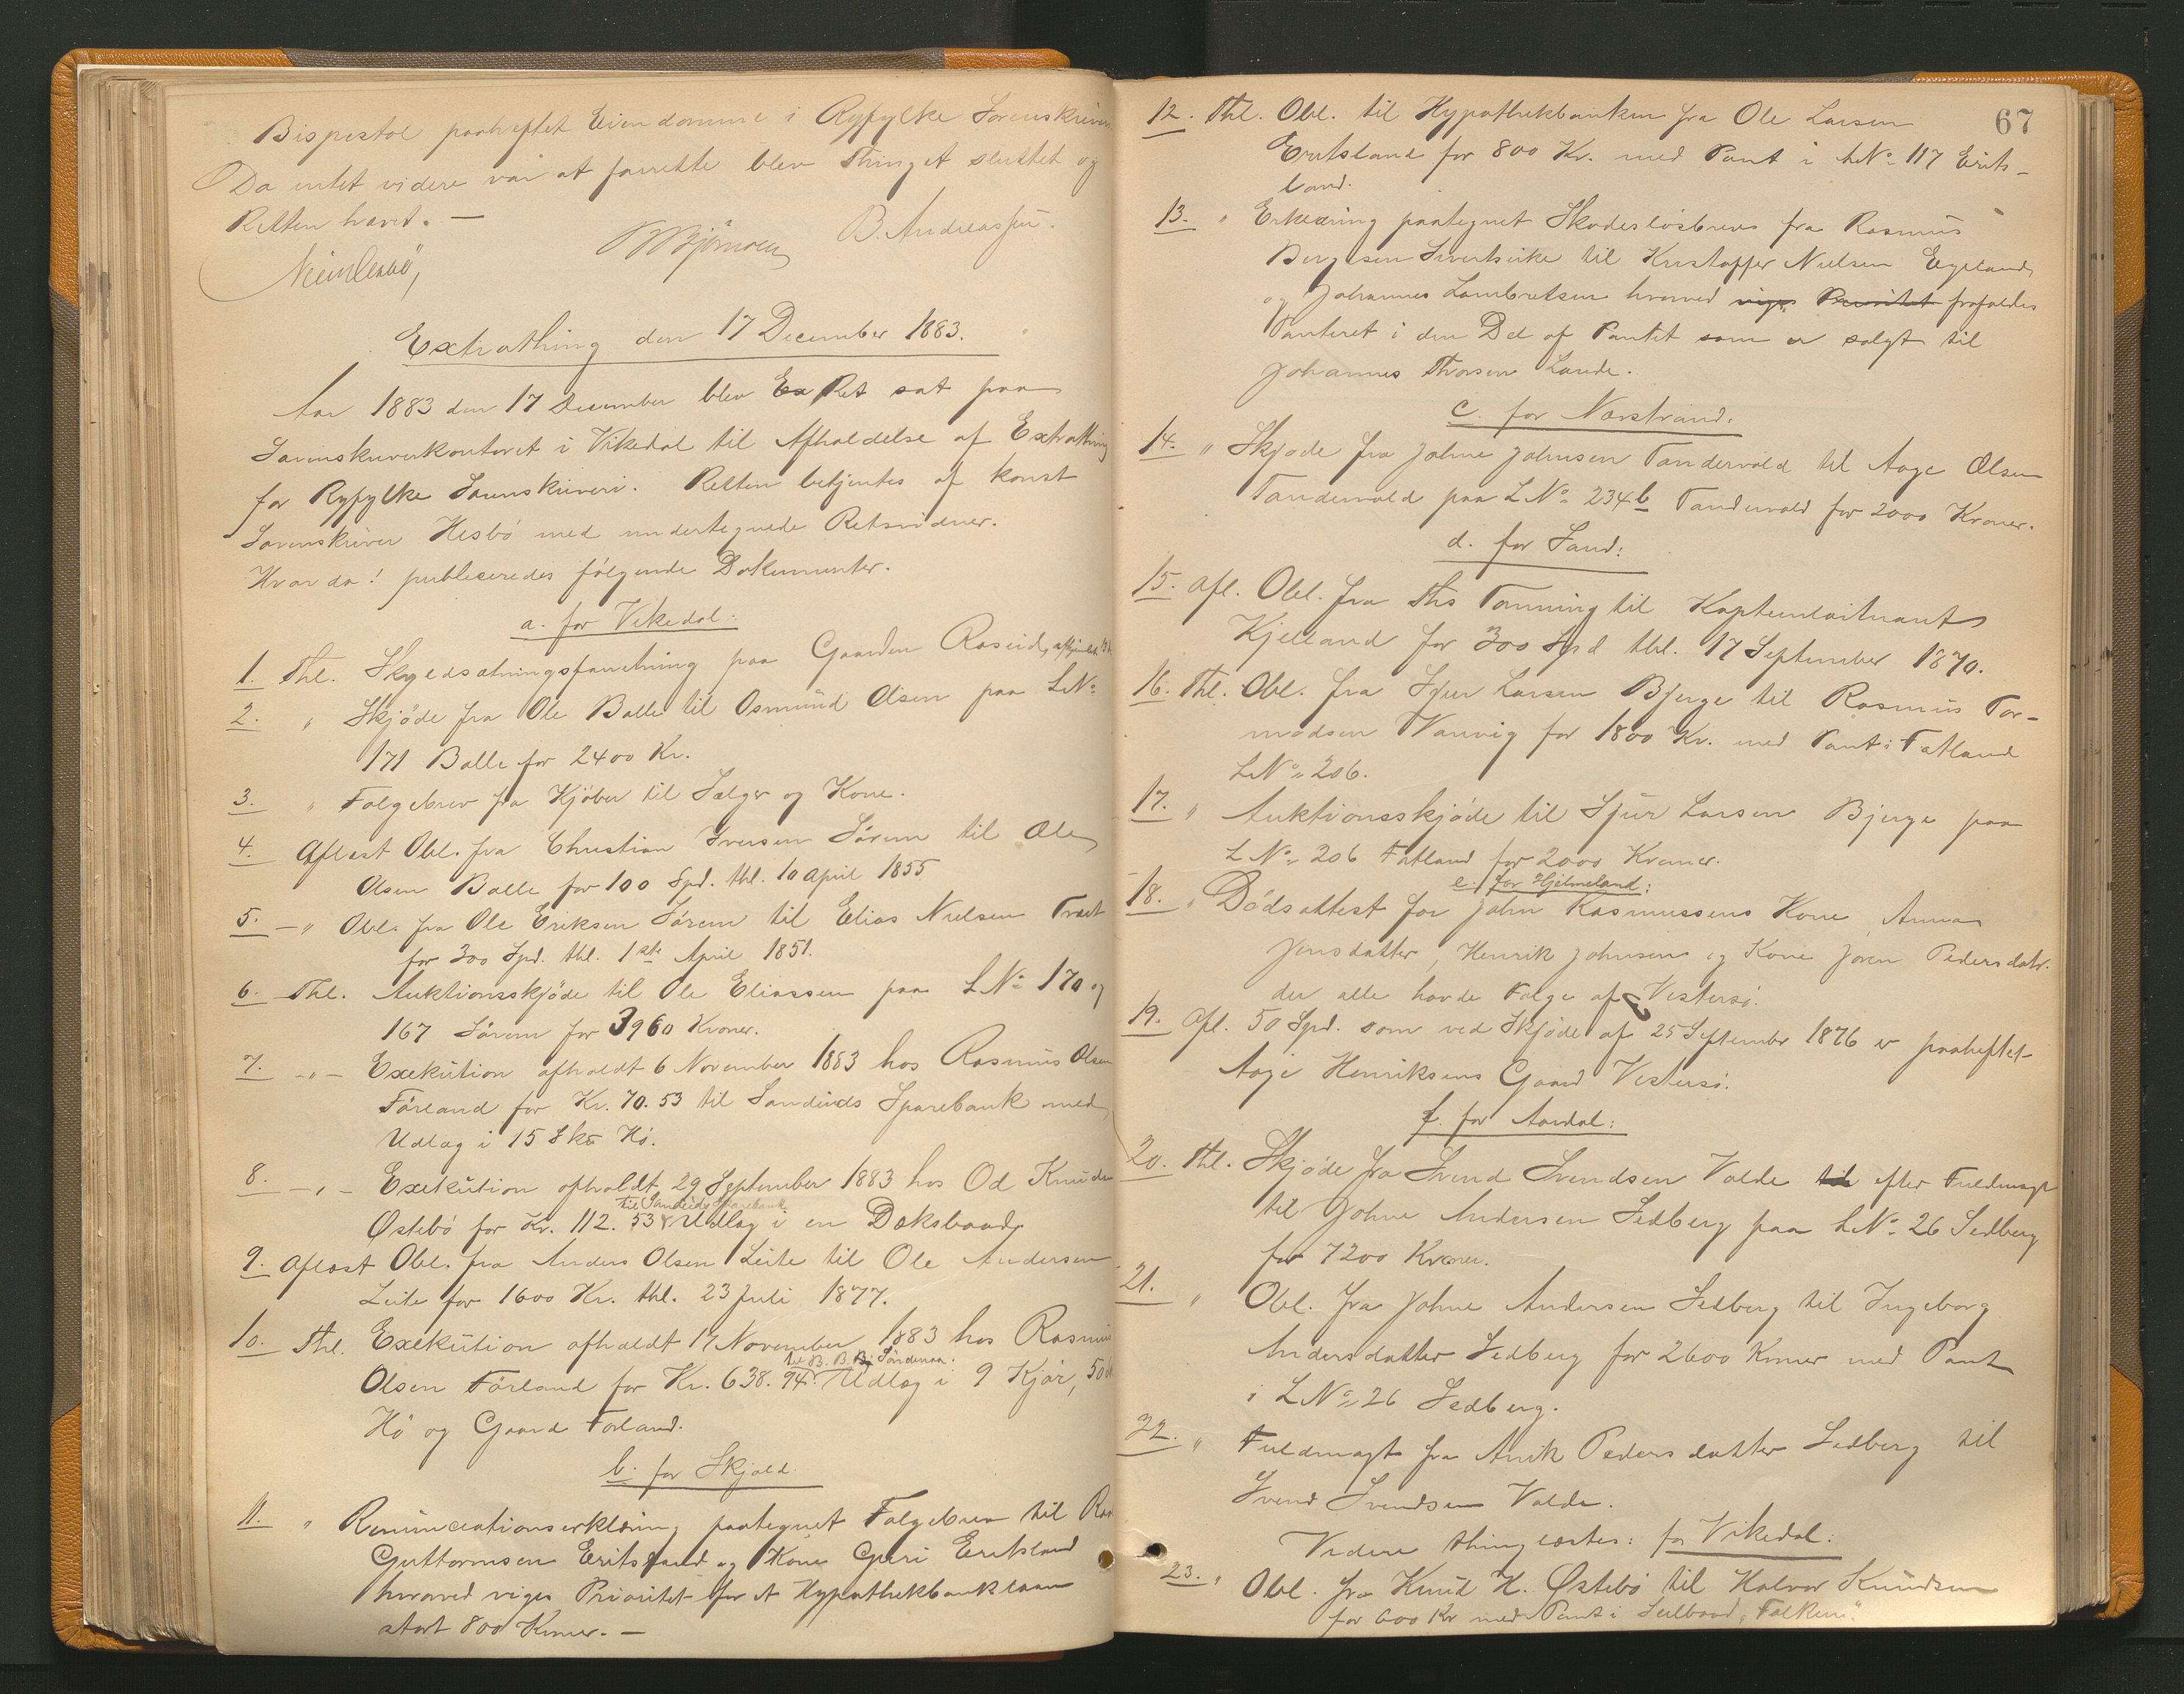 Bispestol paaheftet Eiendomme i Ryfylke Sorenskriveri
Da intet videre var at forrette blev Thinget sluttet og
Retten hævet. —
B. Andreassen.
Extrathing den 17 December 1883.
Aar 1883 den 17 December blev Ex Ret sat paa
Sorenskriverkontoret i Vikedal til Afholdelse af Extrathing
for Ryfylke Sorenskriveri. Retten betjentes af konst
Sorenskriver Hesbö med undertegnede Retsvidner.
Hvor da! publiceredes fölgende Dokumenter.
a. for Vikedal:
1. Thl. Skyldsætningsforretning paa Gaarden Røseid,
2. " Skjöde fra Ole Balle til Osmund Olsen paa LNo
171 Balle for 2400 Kr.
3. " Folgebrev fra Kjöber til Sælger og Kone.
4. Aflæst Obl. fra Christian Iversen Sörem til Ole
Olsen Balle for 100 Spd. thl. 10 April 1855
5. —"— Obl. fra Ole Eriksen Sörem til Elias Nielsen Træet
for 300 Spd. thl. 1ste April 1851.
6. Thl. Auktionsskjöde til Ole Eliassen paa LNo 170 og
167 Sörem for 3960 Kroner.
7. —"— Exekution afholdt 6 November 1883 hos Rasmus Olsen
Förland for Kr. 70.53 til Sandeids Sparebank med
Udlæg i 15 Hö.
8. —"— Exekution afholdt 29 September 1883 hos Od Knudsen
til Sandeids Sparebank
Østebö for Kr. 112.53 Udlæg i en Døksbaad.
9. Aflæst Obl. fra Anders Olsen Leite til Ole Andersen
Leite for 1600 Kr. thl. 23 Juli 1877.
10. Thl. Exekution afholdt 17 November 1883 hos Rasmus
til B. B. Söndenaa.
Olsen Förland for Kr. 638.94. Udlæg i 9 Kjör, 50
Hö og Gaard Förland.
b. for Skjold
11. " Renunciationserklæring paategnet Folgebrev til
Guttormsen Eritsland og Kone Guri Eritsland
hvorved viges Prioritet for et Hypothekbanklaan
stort 800 Kroner. —
67
12. Thl. Obl. til Hypothekbanken fra Ole Larsen
Eritsland for 800 Kr. med Pant i LNo 117 Erits-
land.
13. " Erklæring paategnet Skadeslösbrev fra Rasmus
Bergesen Sivertsvike til Kristoffer Nielsen Egeland
og Johannes Lambretsen hvorved viges Prioritet frafaldes
Panteret i den Del af Pantet som er solgt til
Johannes Thorsen Lande.
c. for Nærstrand.
14. " Skjøde fra Johne Johnsen Tandervold til Aage Olsen
Tandervold paa LNo 234b Tandervold for 2000 Kroner.
d. for Sand:
15. Afl. Obl. fra Ths Tønning til Kapteinløitnant
Kjelland for 300 Spd thl. 17 September 1870.
16. Thl. Obl. fra Sjur Larsen Bjerge til Rasmus Tor-
modsen Vanvig for 1800 Kr. med Pant i Fatland
LNo 206.
17. " Auktionsskjöde til Sjur Larsen Bjerge paa
LNo 206 Fatland for 2000 Kroner.
e. for Hjelmeland:
18. " Dödsattest for John Rasmussens Kone Anna
Jensdatter, Henrik Johnsen og Kone Joren Pedersdatr.
der alle havde Folge af Vestersö.
19. Afl. 50 Spd. som ved Skjöde af 25 September 1876 er paaheftet
Aage Henriksens Gaard Vestersö.
f. for Aardal:
20. Thl. Skjöde fra Svend Svendsen Valde til efter Fuldmagt
til Johne Andersen Sedberg paa LNo 26 Sedberg
for 7200 Kroner.
21. " Obl. fra Johne Andersen Sedberg til Ingeborg
Andersdatter Sedberg for 2600 Kroner med Pant
i LNo 26 Sedberg.
22. " Fuldmagt fra Anik Pedersdatter Sedberg til
Svend Svendsen Valde.
Videre thinglæstes: for Vikedal:
23. " Obl. fra Knud K. Østebö til Halvor Knudsen
for 600 Kr med Pant i Seilbaad "Falken".